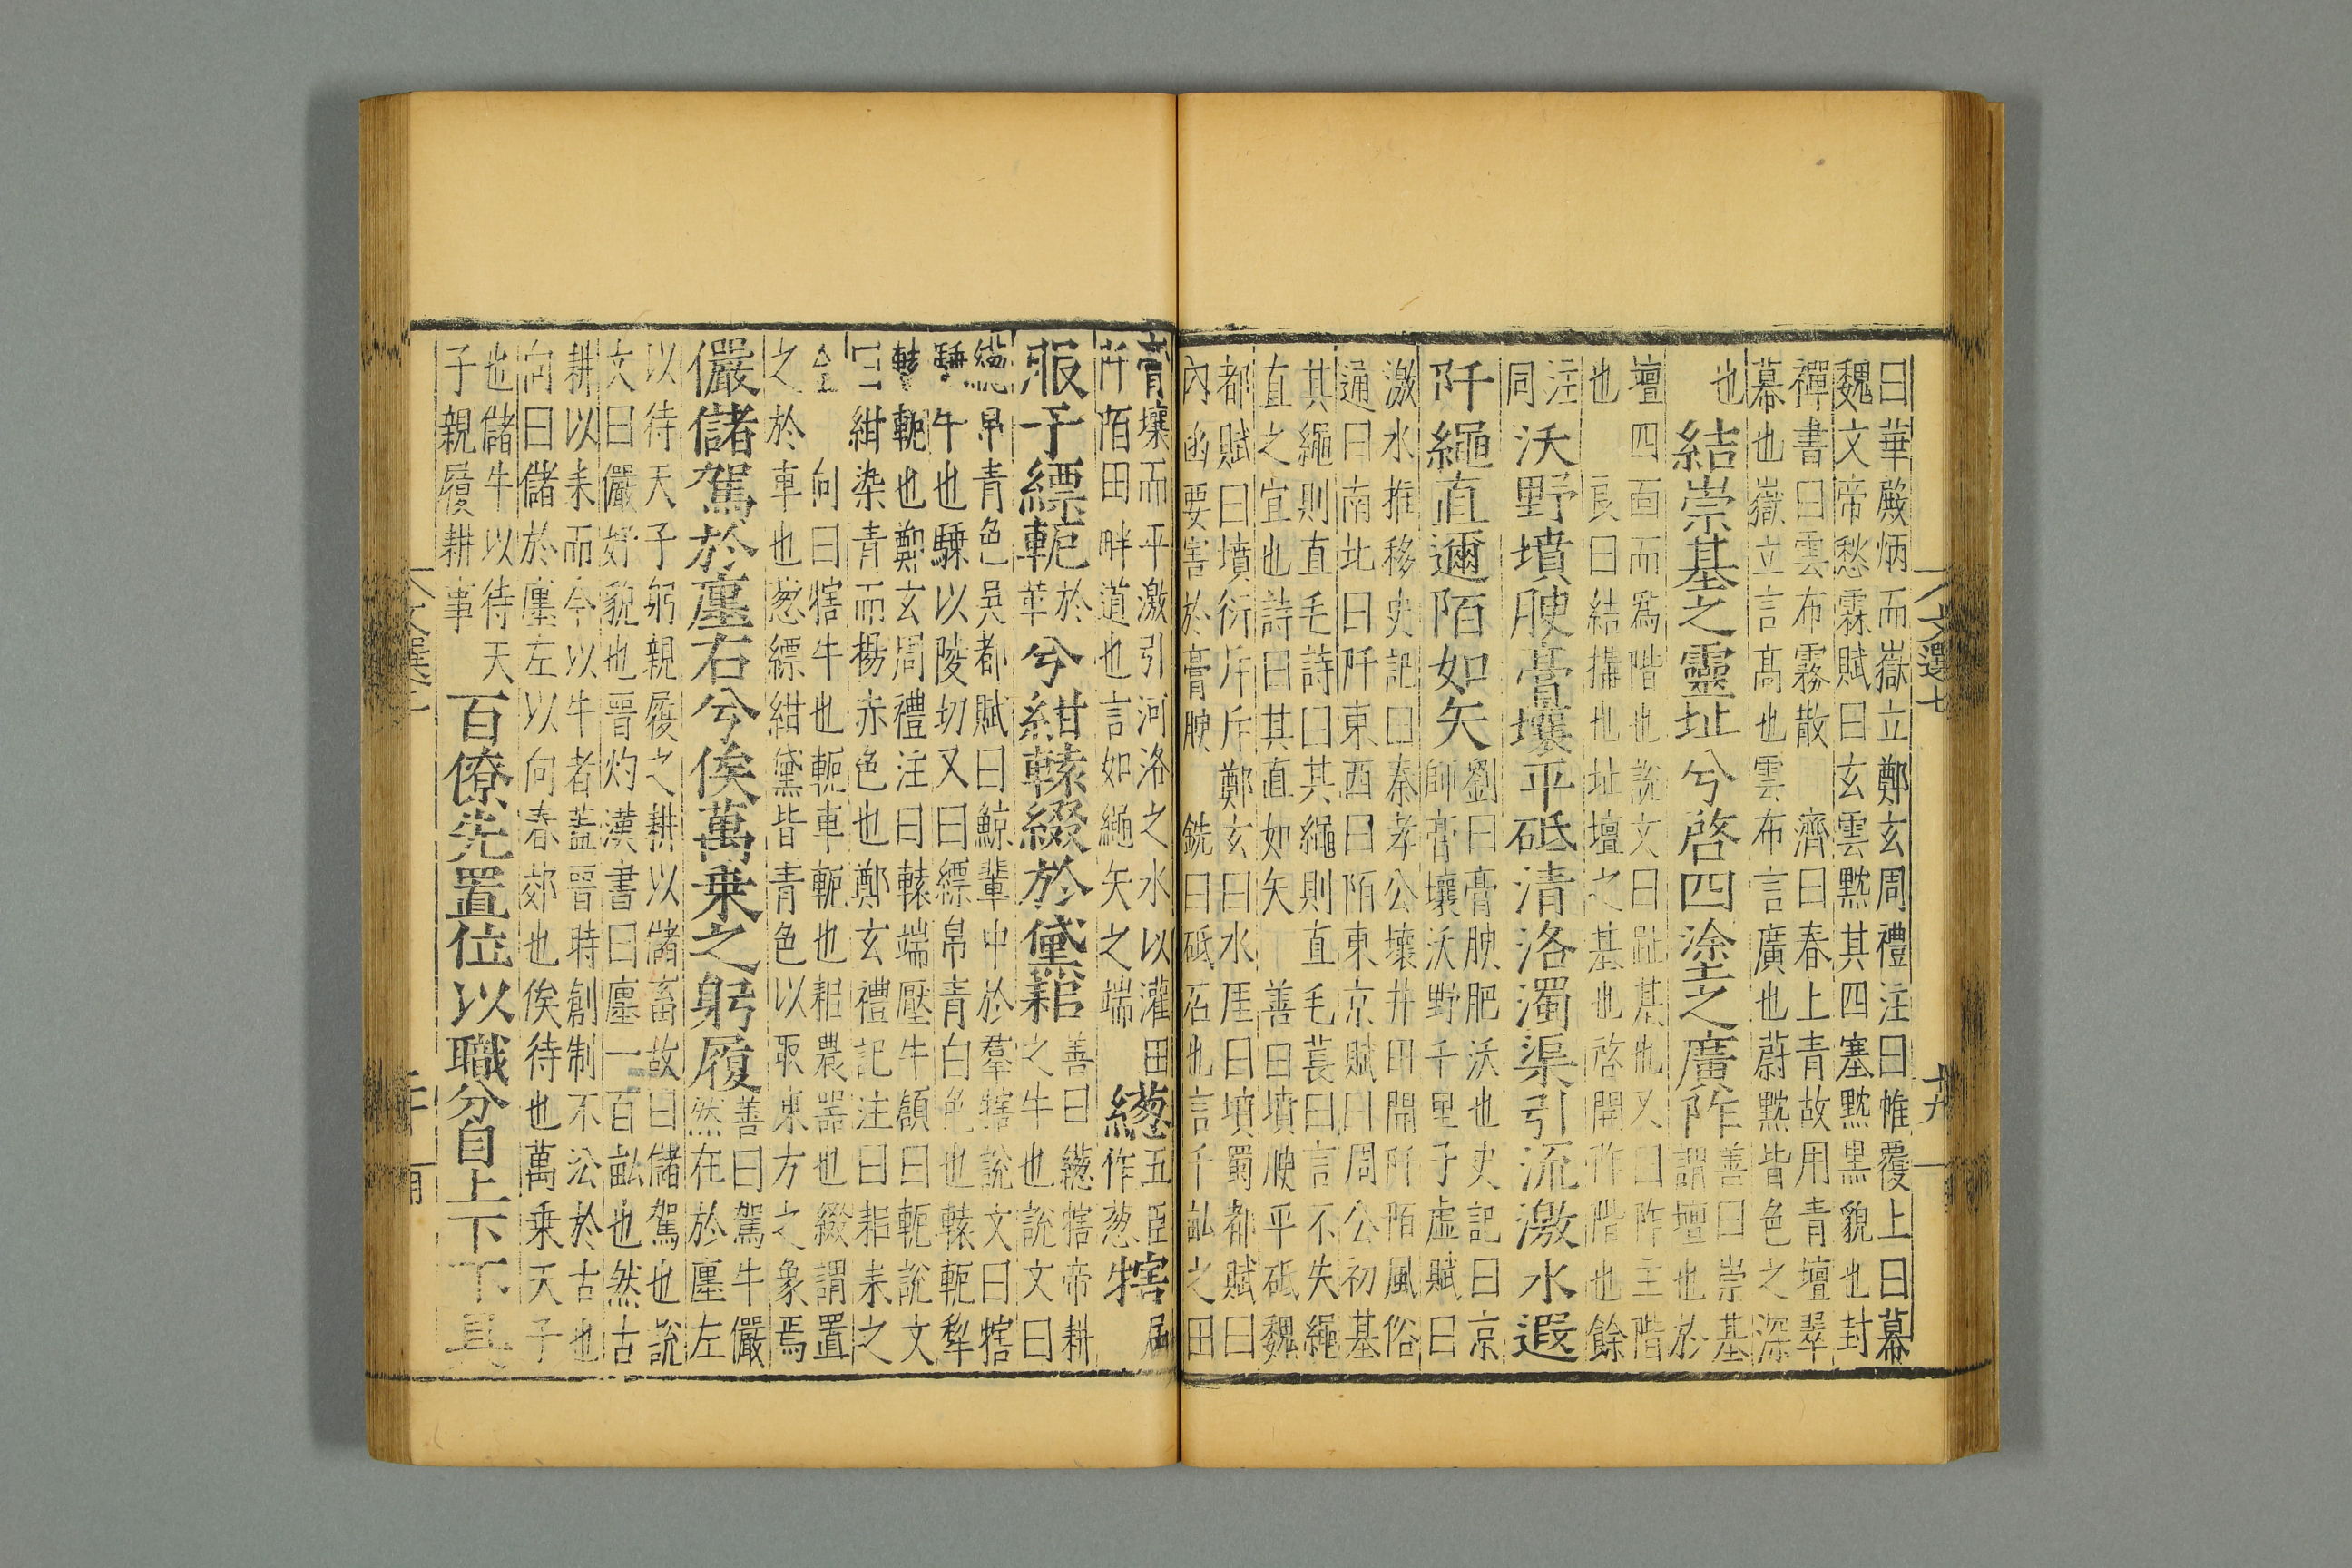 曰華殿炳而嶽立鄭玄周禮注曰帷覆上曰幕
魏文帝愁霖賦曰玄雲黙其四塞黙黑貌也封
禪書曰雲布霧散 濟曰春上青故用青壇翠
幕也嶽立言髙也雲布言廣也蔚黙皆色之深
也
結崇基之靈址兮啓四塗之廣阼
善曰崇基
謂壇也於
壇四面而爲階也說文曰趾基也又曰阼主階
也 良曰結搆也址壇之基也啓開阼階也餘
注
同
沃野墳腴膏壤平砥清洛濁渠引流激水遐
阡繩直邇陌如矢
劉曰膏腴肥沃也史記曰京
師膏壤沃野千里子虛賦曰
激水推移史記曰秦孝公壞井田開阡陌風俗
通曰南北曰阡東西曰陌東京賦曰周公初基
其繩則直毛詩曰其繩則直毛萇曰言不失繩
直之宜也詩曰其直如矢 善曰墳腴平砥魏
都賦曰墳衍斥斥鄭玄曰水厓曰墳蜀都賦曰
內函要害於膏腴 銑曰砥石也言千畝之田
膏壤而平激引河洛之水以灌田
阡陌田畔道也言如繩矢之端
繱
五臣
作葱
犗
服于縹軛
於
革
兮紺轅綴於黛耜
善曰繱犗帝耕
之牛也說文曰
繱帛青色吳都賦曰鯨輩中於羣犗說文曰犗
騬牛也騬以陵切又曰縹帛青白色也轅軛犂
轅軛也鄭玄周禮注曰轅端壓牛領曰軛說文
曰紺染青而揚赤色也鄭玄禮記注曰耜耒之
金 向曰犗牛也軛車軛也耜農器也綴謂置
之於車也葱縹紺黛皆青色以取東方之象焉
儼儲駕於廛右兮俟萬乗之躬履
善曰駕牛儼
然在於廛左
以待天子躬親履之耕以儲畜故曰儲駕也說
文曰儼好貌也晉灼漢書曰廛一百畝也然古
耕以耒而今以牛者蓋晉時創制不沿於古也
向曰儲於廛左以向春郊也俟待也萬乗天子
也儲牛以待天
子親履耕事
百僚先置位以職分自上下下具